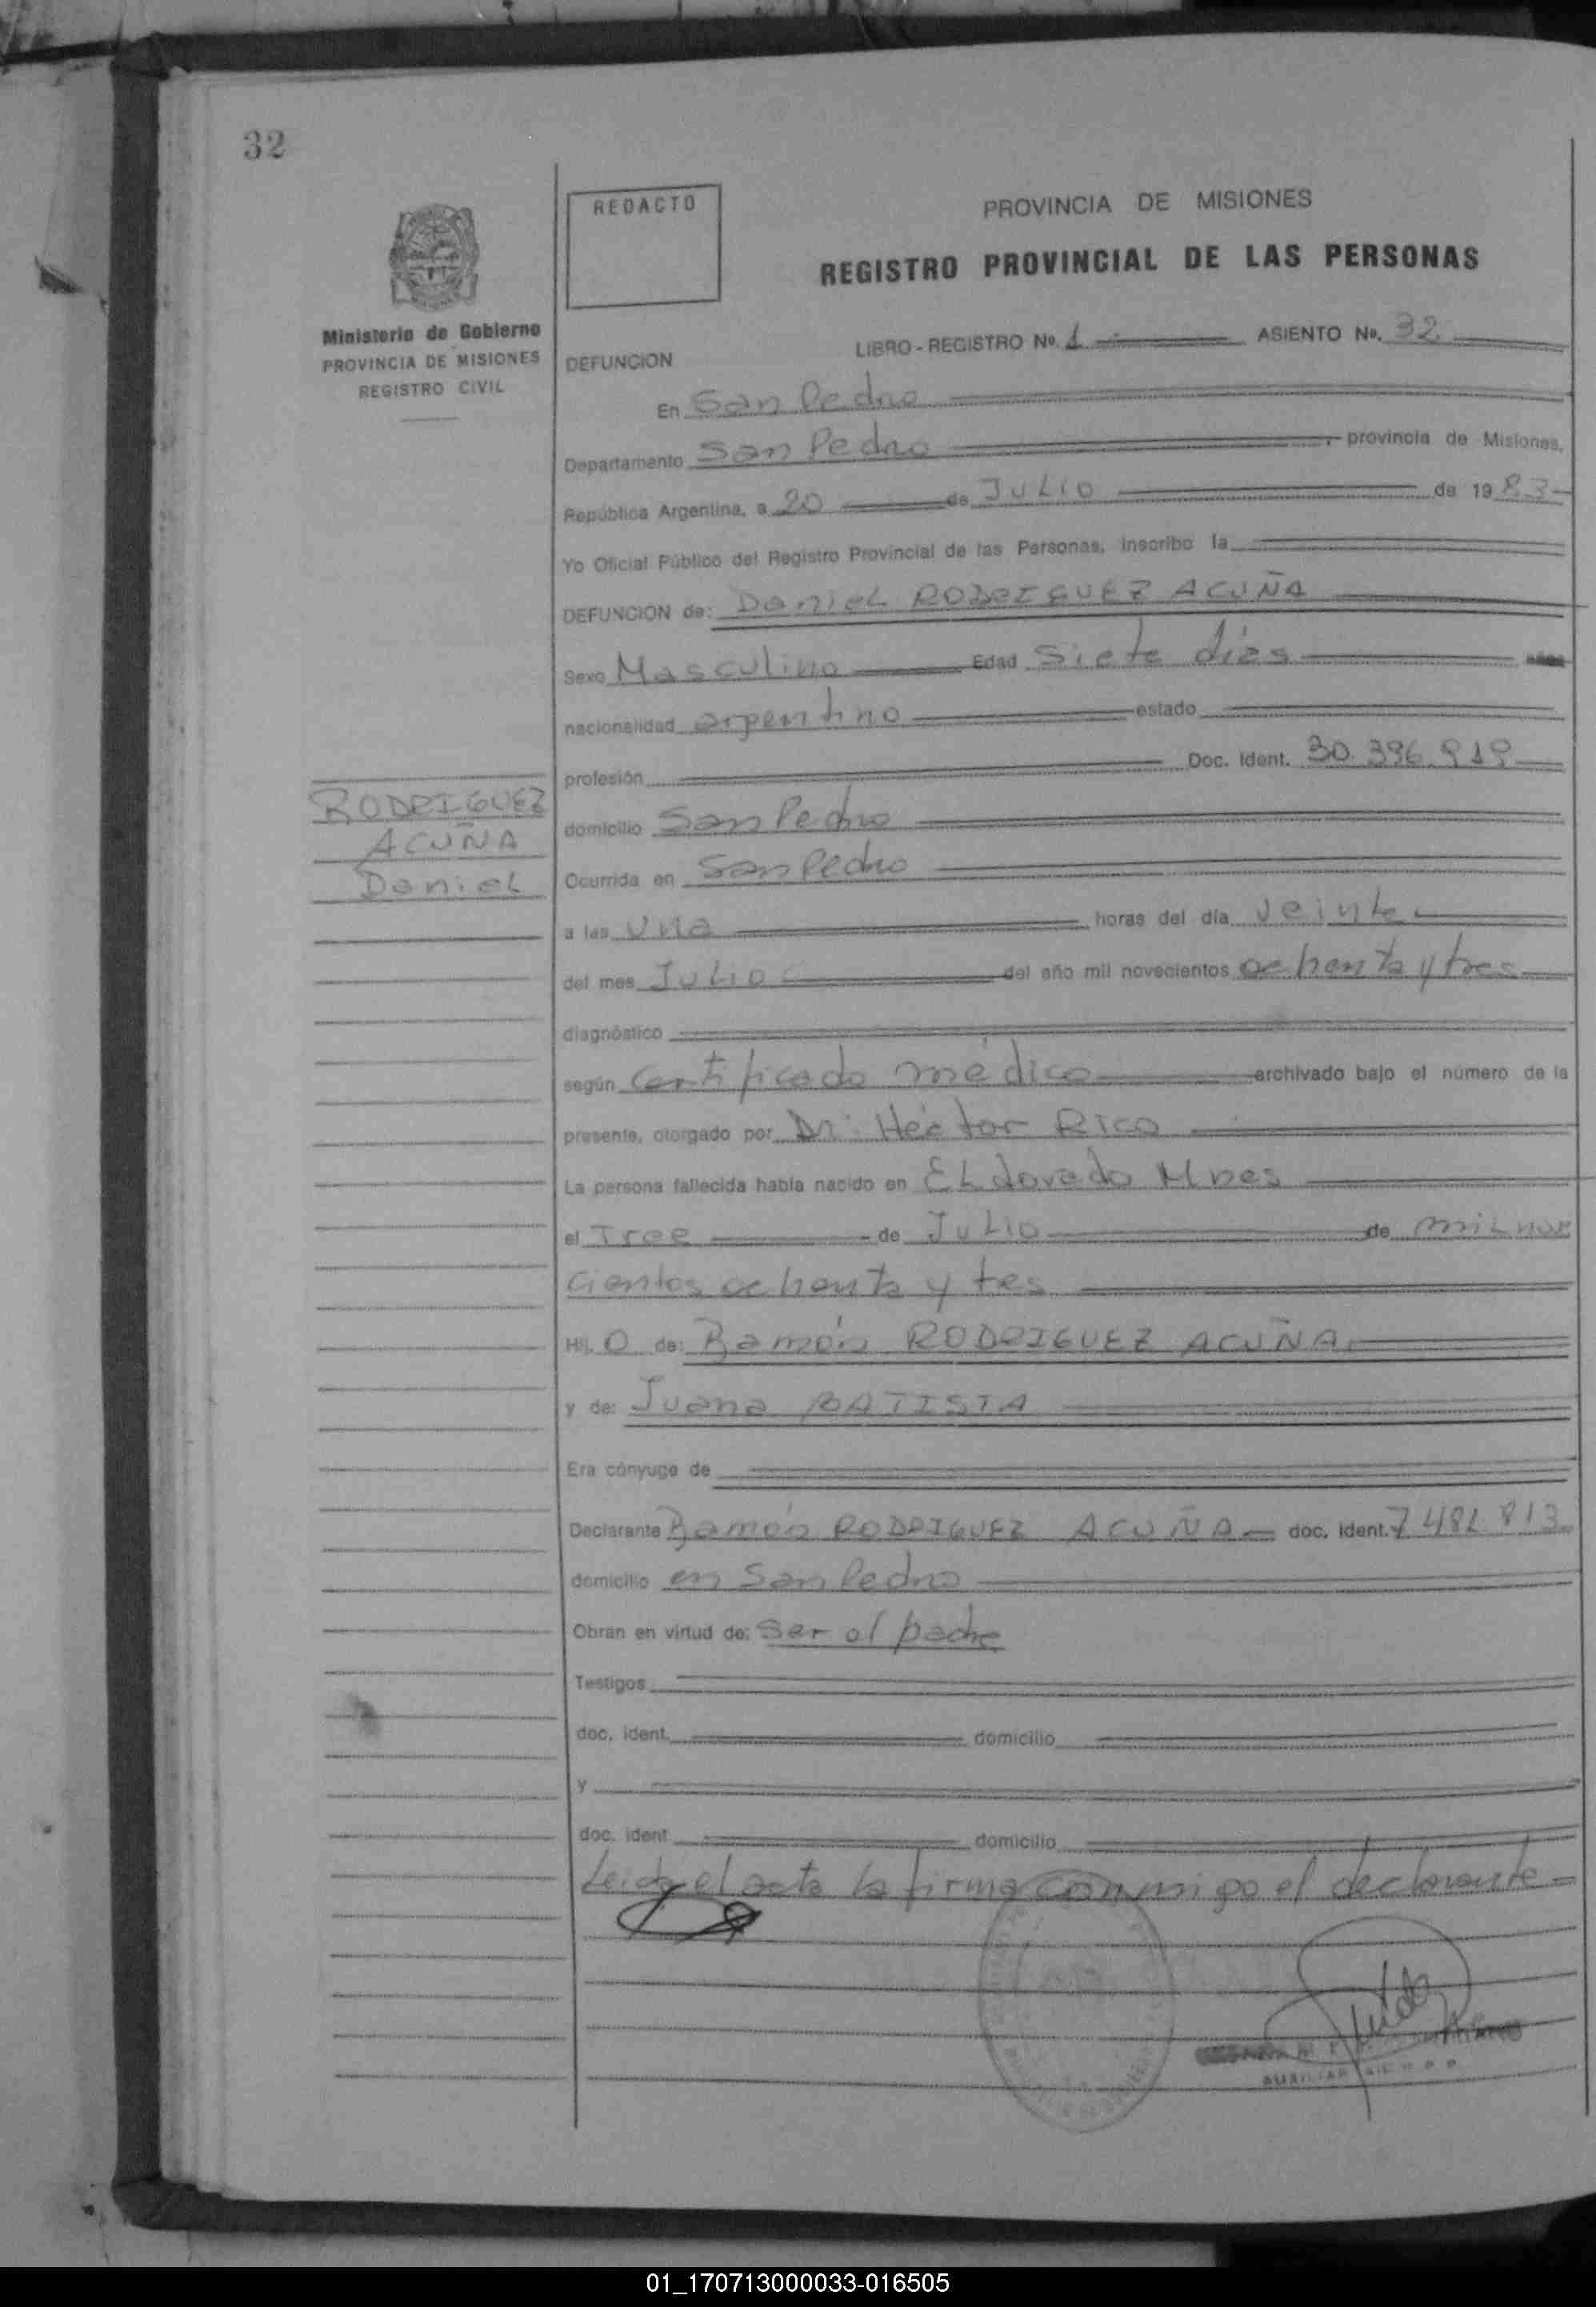 32
REDACTO
PROVINCIA DE MISIONES
REGISTRO PROVINCIAL DE LAS PERSONAS
Ministerio de Gobierno
PROVINCIA DE MISIONES
REGISTRO CIVIL
DEFUNCION
LIBRO - REGISTRO No. 1 ASIENTO No. 32
En San Pedro
Departamento San Pedro, provincia de Misiones,
República Argentina, a 20 de JULIO de 1983
Yo Oficial Público del Registro Provincial de las Personas, inscribo la
DEFUNCION de: DanieL RODRIGUEZ ACUÑA
Sexo Masculino Edad Siete días
nacionalidad argentino estado
profesión Doc. Ident. 30.396.919
RODRIGUEZ
ACUÑA
DanieL
domicilio San Pedro
Ocurrida en San Pedro
a las una horas del día veinte
del mes JuLio del año mil novecientos ochenta y tres
diagnóstico
según Certificado médico archivado bajo el número de la
presente, otorgado por Dr. Héctor Rico
La persona fallecida había nacido en ELdorado Mnes
el Tree de JuLio de miL nove
cientos ochenta y tes
Hij O de: Ramón RODRIGUEZ ACUÑA
y de: Juana BATISTA
Era cónyuge de
Declarante Ramón RODRIGUEZ ACUÑA doc. ident. 7481813
domicilio en San Pedro
Obran en virtud de: ser el padre
Testigos
doc. ident. domicilio
y
doc. ident domicilio
Leida el acta la firma conmigo el declarante
AUXILIAR
01_170713000033-016505